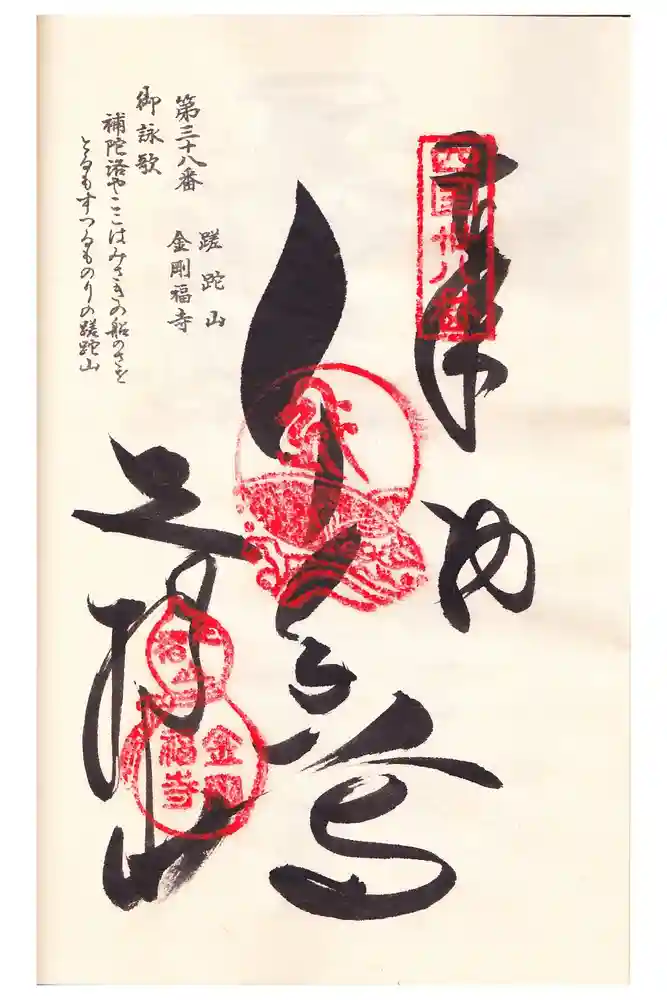 四国卅八番
奉納
蹉跎山
第三十八番
金剛福寺
御詠歌
補陀洛やここはみさきの船のさを
とるもすつるものりの蹉跎山
足摺山
金剛
福寺